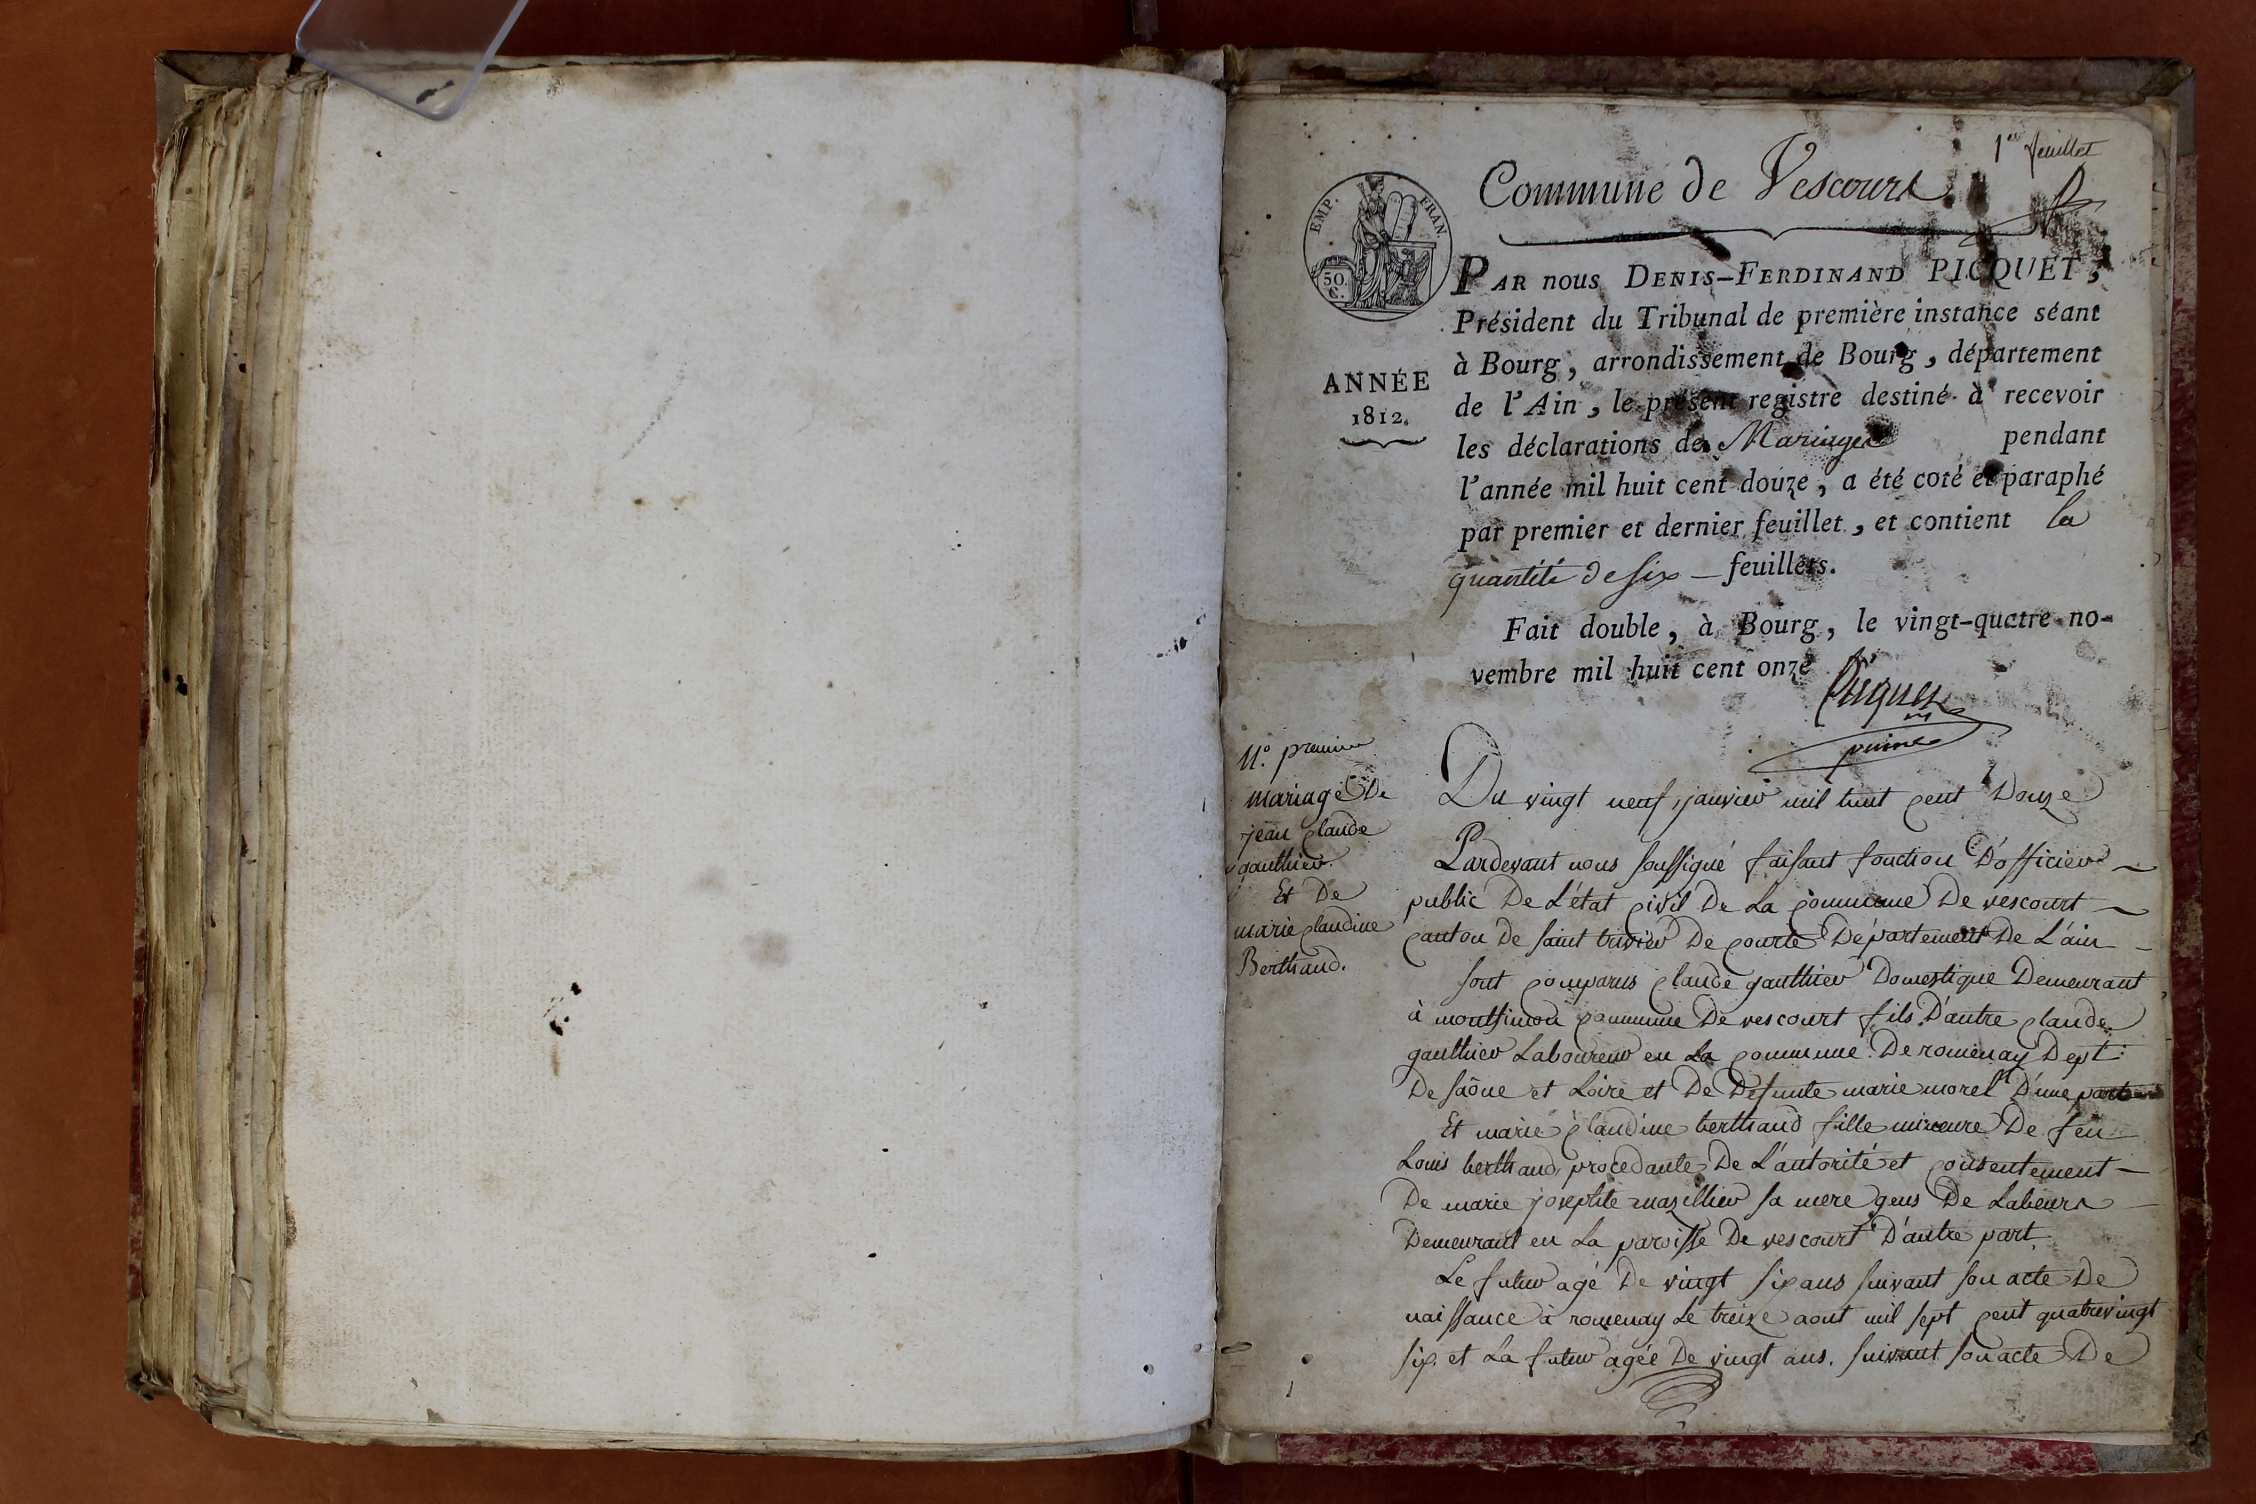 1er feuillet
Commune de Vescours
EMP. FRAN.
50.
C.
PAR nous DENIS-FERDINAND PICQUET,
Président du Tribunal de première instance séant
à Bourg, arrondissement de Bourg, département
de l'Ain, le présent registre destiné à recevoir
les déclarations de Mariages pendant
l'année mil huit cent douze, a été coté et paraphé
par premier et dernier feuillet, et contient la
quantité de six feuillets.
Fait double, à Bourg, le vingt-quatre no-
vembre mil huit cent onze
ANNÉE
1812.
Picquet
N.º premier
mariage De
jean claude
gauthier.
Et De
marie claudine
Berthaud.
Du vingt neuf janvier mil huit cent Douze
Pardevant nous soussigné faisant fonction D'officier
public De L'état civil De La commune De vescourt
canton De saint trivier De courte Département De L'ain
sont comparus claude gauthier Domestique Demeurant
à montsimon commune De vescourt fils D'autre claude
gauthier Laboureur en La commune De romenay Dept:
De saône et Loire et De Defunte marie morel D'une part
Et marie claudine berthaud fille mineure De feu
Louis berthaud, procedante De L'autorité et consentement
De marie josephte mazillier sa mere gens De Labeurs
Demeurant en La paroisse De vescourt D'autre part
Le futur agé De vingt six ans suivant son acte De
naissance à romenay Le treize aout mil sept cent quatrevingt
six. et La futur agée De vingt ans. suivant son acte De